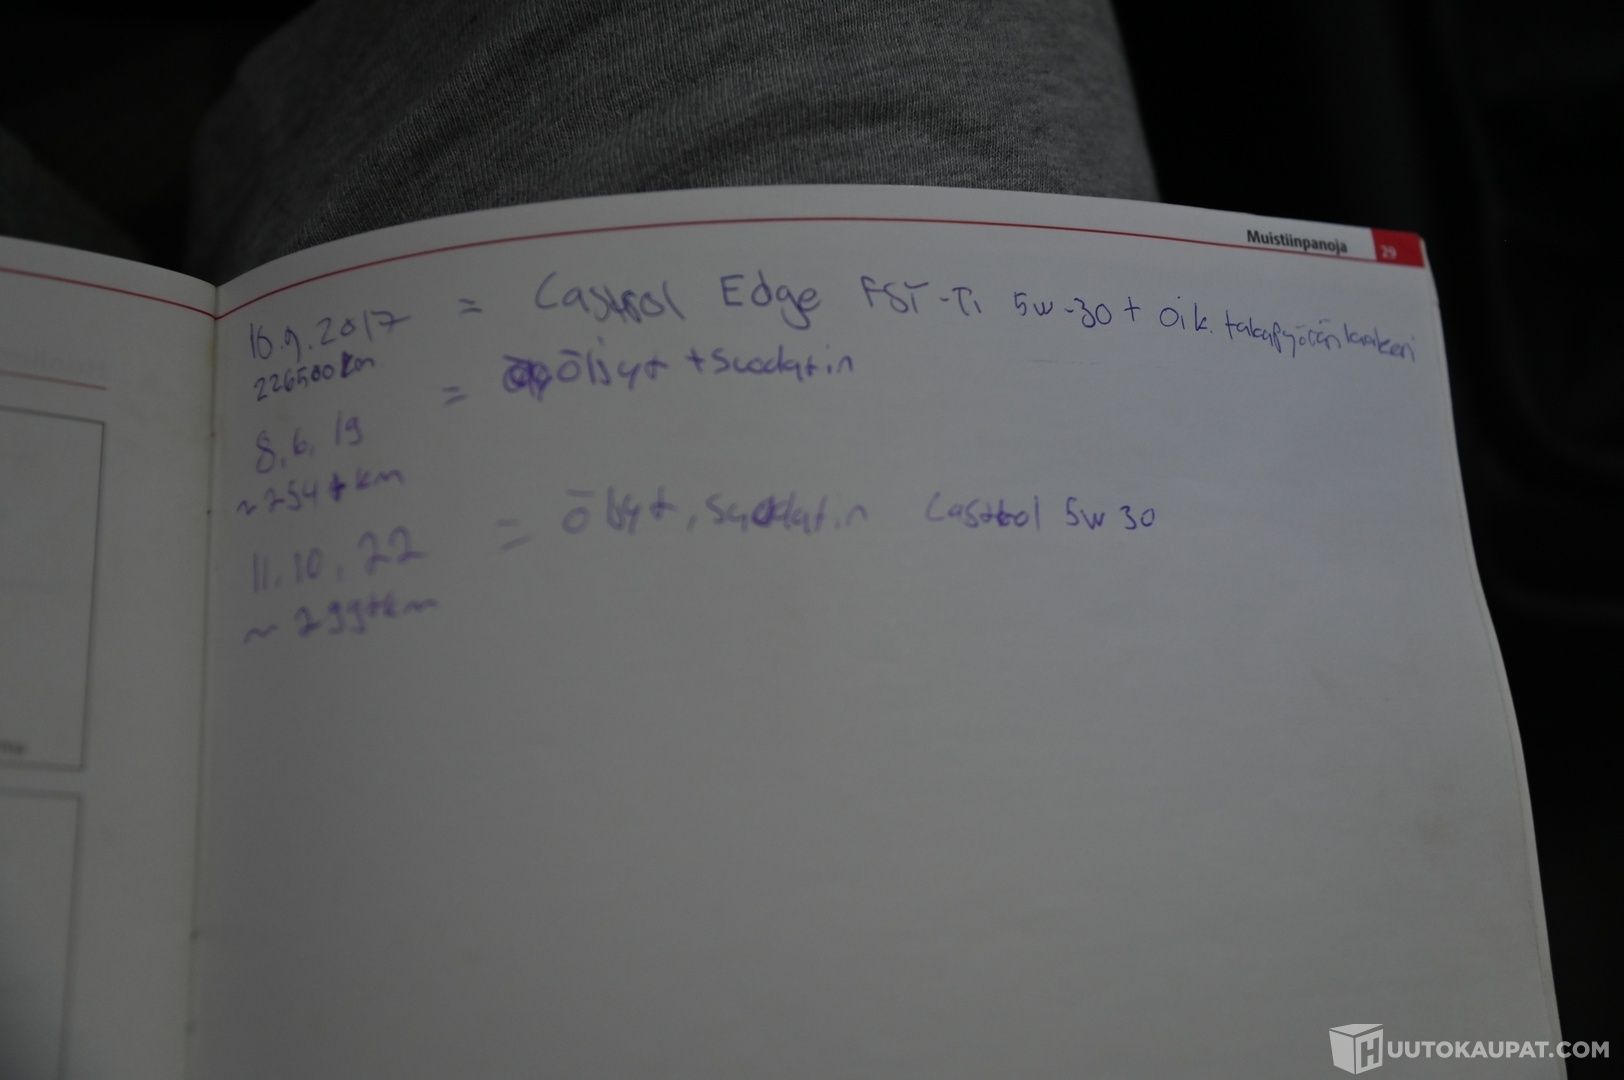 Muistiinpanoja 29
16.9.2017 = Castrol Edge FST-Ti 5w-30 + Oik. takapyörän laakeri
226500km
8.6.19 = öljyt + suodatin
~254tkm
11.10.22 = öljyt, suodatin Castrol 5w30
~299tkm
HUUTOKAUPAT.COM